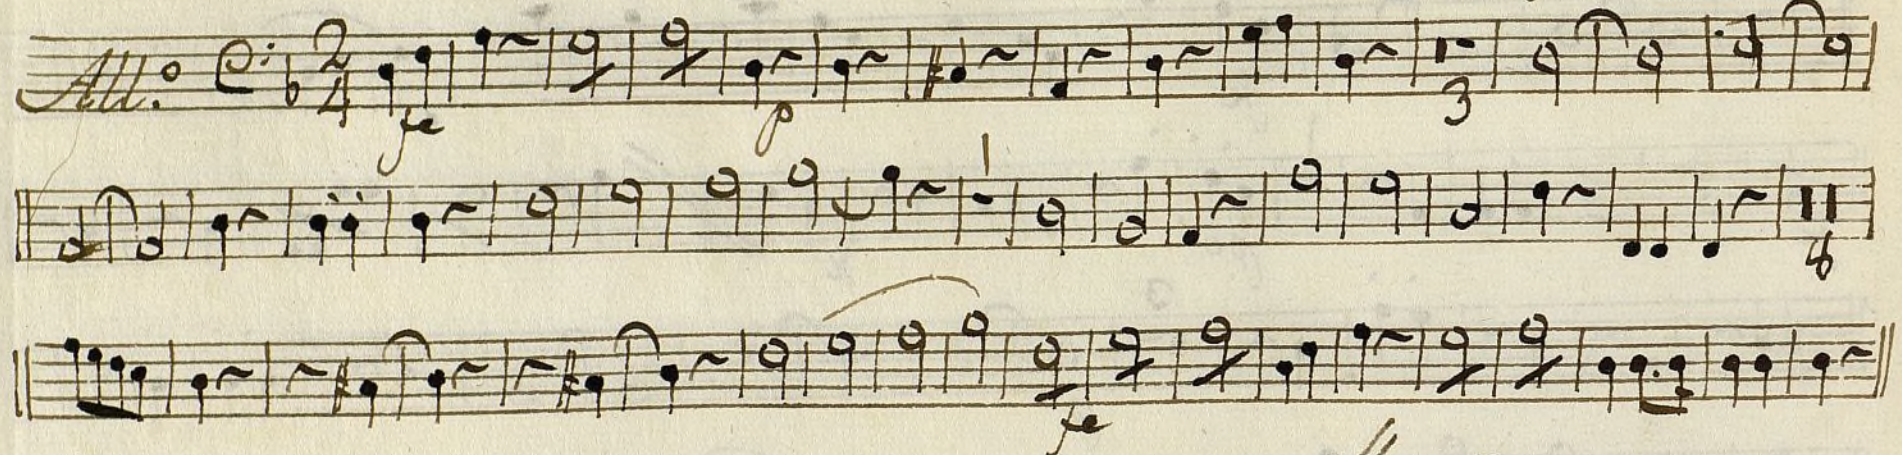 All.o 2 4
fe p 3
1
6
fe